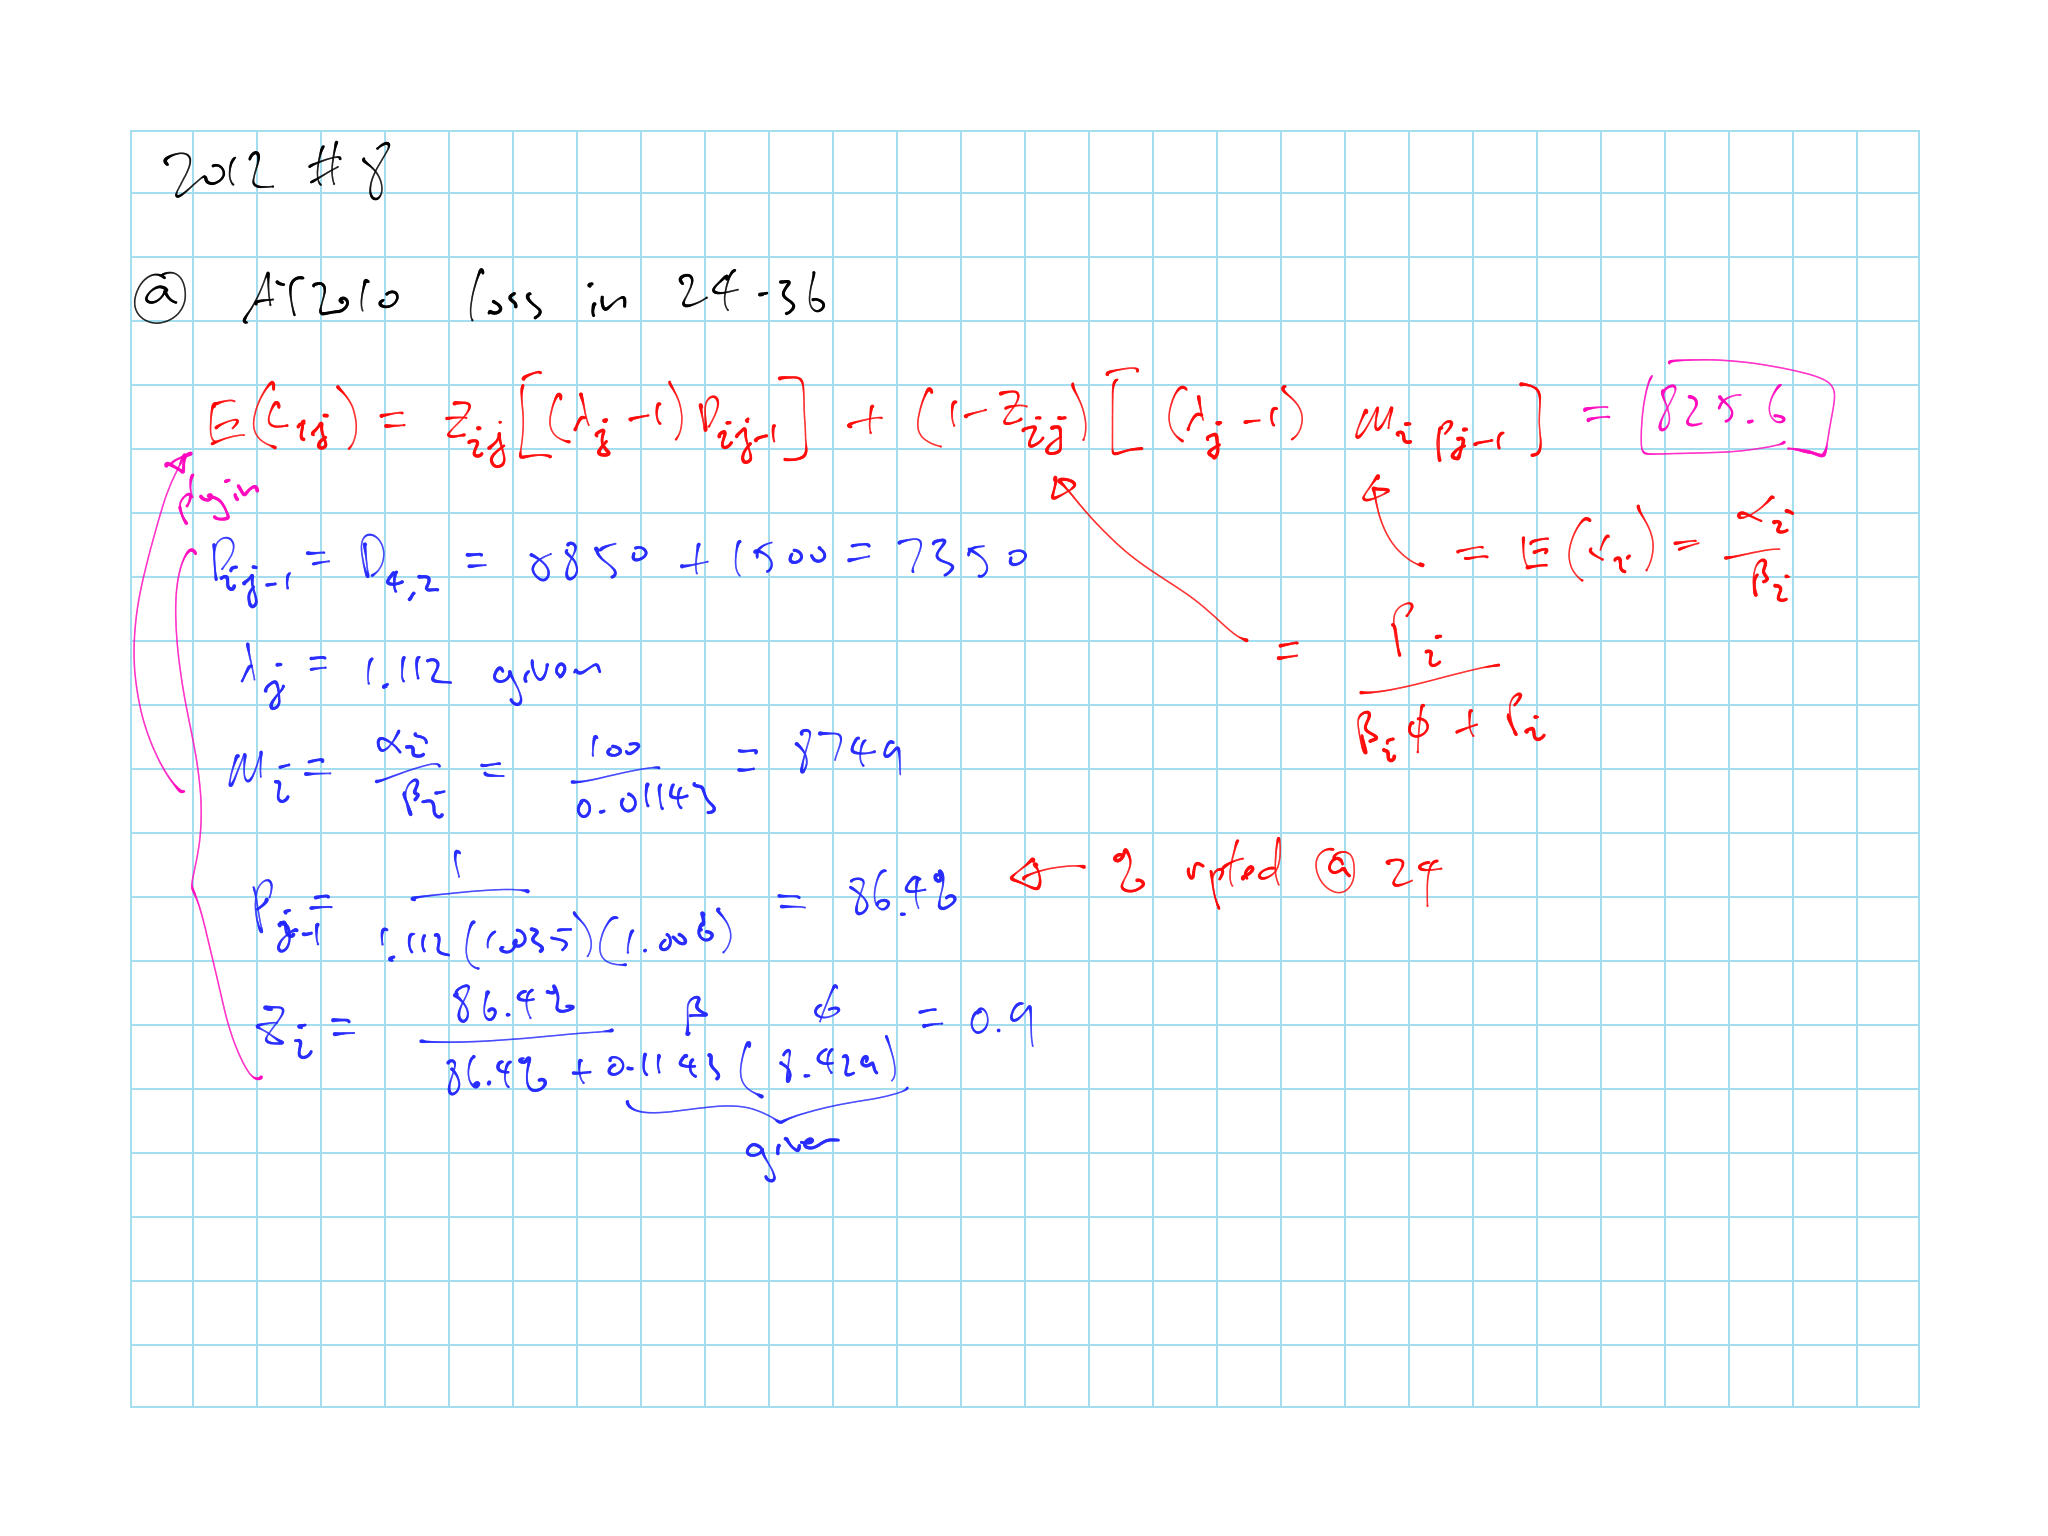 2012 #8
ⓐ AY2010 loss in 24-36
E(C_ij) = Z_ij[(λ_j - 1) D_ij-1] + (1 - Z_ij)[(λ_j - 1) M_i P_j-1] = 825.6
plug in
D_ij-1 = D_4,2 = 5850 + 1500 = 7350
= E(x_i) = α_i / β_i
= P_i / (β_i φ + P_i)
λ_j = 1.112 given
M_i = α_i / β_i = 100 / 0.01143 = 8749
P_j-1 = 1 / 1.112(1.035)(1.006) = 86.4% ← % rpted @ 24
Z_i = 86.4% / (86.4% + 0.1143 (8.429)) = 0.9
β φ
given